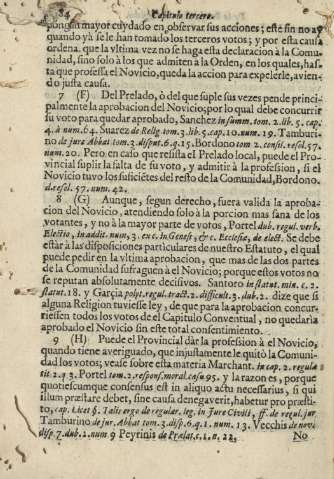 84 Capitulo tercero.
pongan mayor cuydado en observar sus acciones; este fin no ay
quando yà se le han tomado los terceros votos; y por esta causa
ordena. que la vltima vez no se haga esta declaracion à la Comu-
nidad, sino solo à los que admiten à la Orden, en los quales, has-
ta que professa el Novicio, queda la accion para expelerle, avien-
do justa causa.
7 (F) Del Prelado, ò del que suple sus vezes pende princi-
palmente la aprobacion del Novicio; por lo qual debe concurrir
su voto para quedar aprobado, Sanchez in summ. tom. 2. lib. 5. cap.
4. à num. 64. Suarez de Relig. tom. 3. lib. 5. cap. 10. num. 19. Tamburi-
no de jure Abbat tom. 3. disput. 6. q. 15. Bordono tom 2. consil. resol. 57.
num. 20. Pero en caso que resista el Prelado local, puede el Pro-
vincial suplir la falta de su voto, y admitir à la profession, si el
Novicio tuvo los suficiétes del resto de la Comunidad, Bordono.
d. resol. 57. num. 42.
8 (G) Aunque, segun derecho, fuera valida la aproba-
cion del Novicio, atendiendo solo à la porcion mas sana de los
votantes, y no à la mayor parte de votos, Portel dub. regul. verb.
Electio, in addit. num. 3. ex c. In Genes, & c. Ecclesiæ, de elect. Se debe
estàr à las disposiciones particulares de nuestro Estatuto, el qual
puede pedir en la vltima aprobacion, que mas de las dos partes
de la Comunidad sufraguen à el Novicio; porque estos votos no
se reputan absolutamente decisivos. Santoro in statut. min. c. 2.
statut. 18. y Garçia polyt. regul. tract. 2. difficult. 3. dub. 2. dize que si
alguna Religion tuviesse ley, de que para la aprobacion concur-
riessen todos los votos de el Capitulo Conventual, no quedaria
aprobado el Novicio sin este total consentimiento.
9 (H) Puede el Provincial dàr la profession à el Novicio,
quando tiene averiguado, que injustamente le quitò la Comuni-
dad los votos; vease sobre esta materia Marchant. in cap. 2. regulæ
tit. 2. q. 3. Portel tom. 2. respons. moral. casu 95. y la razon es, porque
quotiescumque consensus est in aliquo actu necessarius, si qui
illum præstare debet, sine causa denegaverit, habetur pro præsti-
to, cap. Licet §. Talis ergo de regular. leg. in jure Civili, ff. de regul. jur.
Tamburino de jur. Abbat tom. 3. disp. 6. q. 1. num. 13. Vecchis de novi.
disp. 7. dub. 2. num 9 Peyrinis de Prælat. c. 1. n. 22,
No